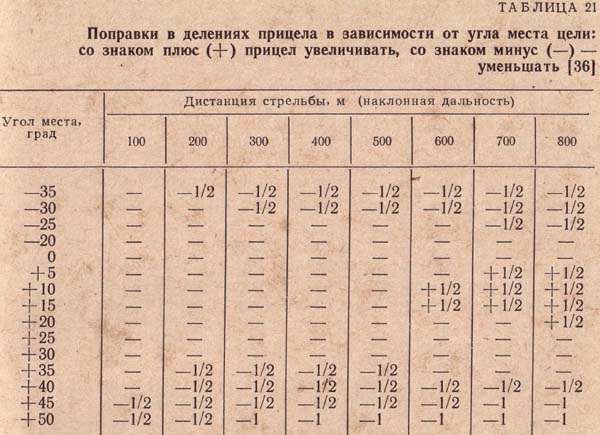 ТАБЛИЦА 21
Поправки в делениях прицела в зависимости от угла места цели:
со знаком плюс (+) прицел увеличивать, со знаком минус (—) —
уменьшать [36]
Угол места, град Дистанция стрельбы, м (наклонная дальность)
100 200 300 400 500 600 700 800
—35 — —1/2 —1/2 —1/2 —1/2 —1/2 —1/2 —1/2
—30 — — —1/2 —1/2 —1/2 —1/2 —1/2 —1/2
—25 — — — — — — —1/2 —1/2
—20 — — — — — — — —
0 — — — — — — — —
+5 — — — — — — +1/2 +1/2
+10 — — — — — +1/2 +1/2 +1/2
+15 — — — — — +1/2 +1/2 +1/2
+20 — — — — — — — +1/2
+25 — — — — — — — —
+30 — — — — — — — —
+35 — —1/2 —1/2 —1/2 —1/2 — — —
+40 — —1/2 —1/2 —1/2 —1/2 —1/2 —1/2 —1/2
+45 —1/2 —1/2 —1/2 —1/2 —1/2 —1/2 —1 —1
+50 —1/2 —1/2 —1 —1 —1 —1 —1 —1